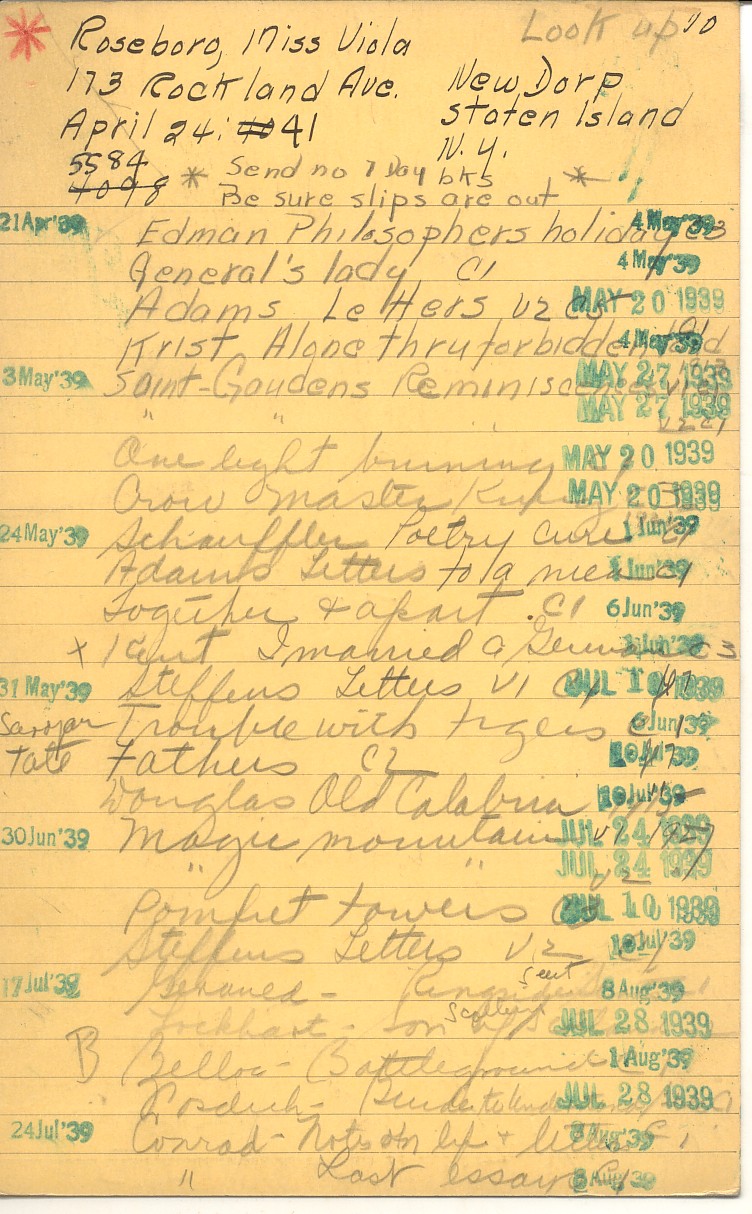 * Roseboro, Miss Viola Look up 10
173 Rockland Ave. New Dorp
April 24: 40 41 Staten Island
5584 N.Y.
4098 * Send no 7 Day bks *
Be sure slips are out
21Apr'39 Edman Philosophers holiday 4May'39
General's lady C1 4May'39
Adams Letters v2 MAY 20 1939
Krist Alone thru forbidden 4May'39
3May'39 Saint-Gaudens Reminiscences MAY 27 1939
" " MAY 27 1939
v2 c1
One light burning MAY 20 1939
Crow Master MAY 20 1939
24May'39 Schauffler Poetry Cure 1Jun'39
Adams Letters to a niece C1
Together & apart. C1 6Jun'39
x I married a German C3
31May'39 Steffens Letters V1 JUL 10 1939
Saroyan Trouble with tigers C1 6Jun'39
Tate Fathers C2 10Jul'39
Douglas Old Calabria 10Jul'39
30Jun'39 Magic mountain v1 1927 JUL 24 1939
" " v2 JUL 24 1939
Pomfret towers JUL 10 1939
Steffens Letters V2 10Jul'39
17Jul'39 8Aug'39
Lockhart - Son JUL 28 1939
B Belloc - Battleground 1Aug'39
JUL 28 1939
24Jul'39 Conrad - Notes on life & letters C1 8Aug'39
" Last essays 8Aug'39